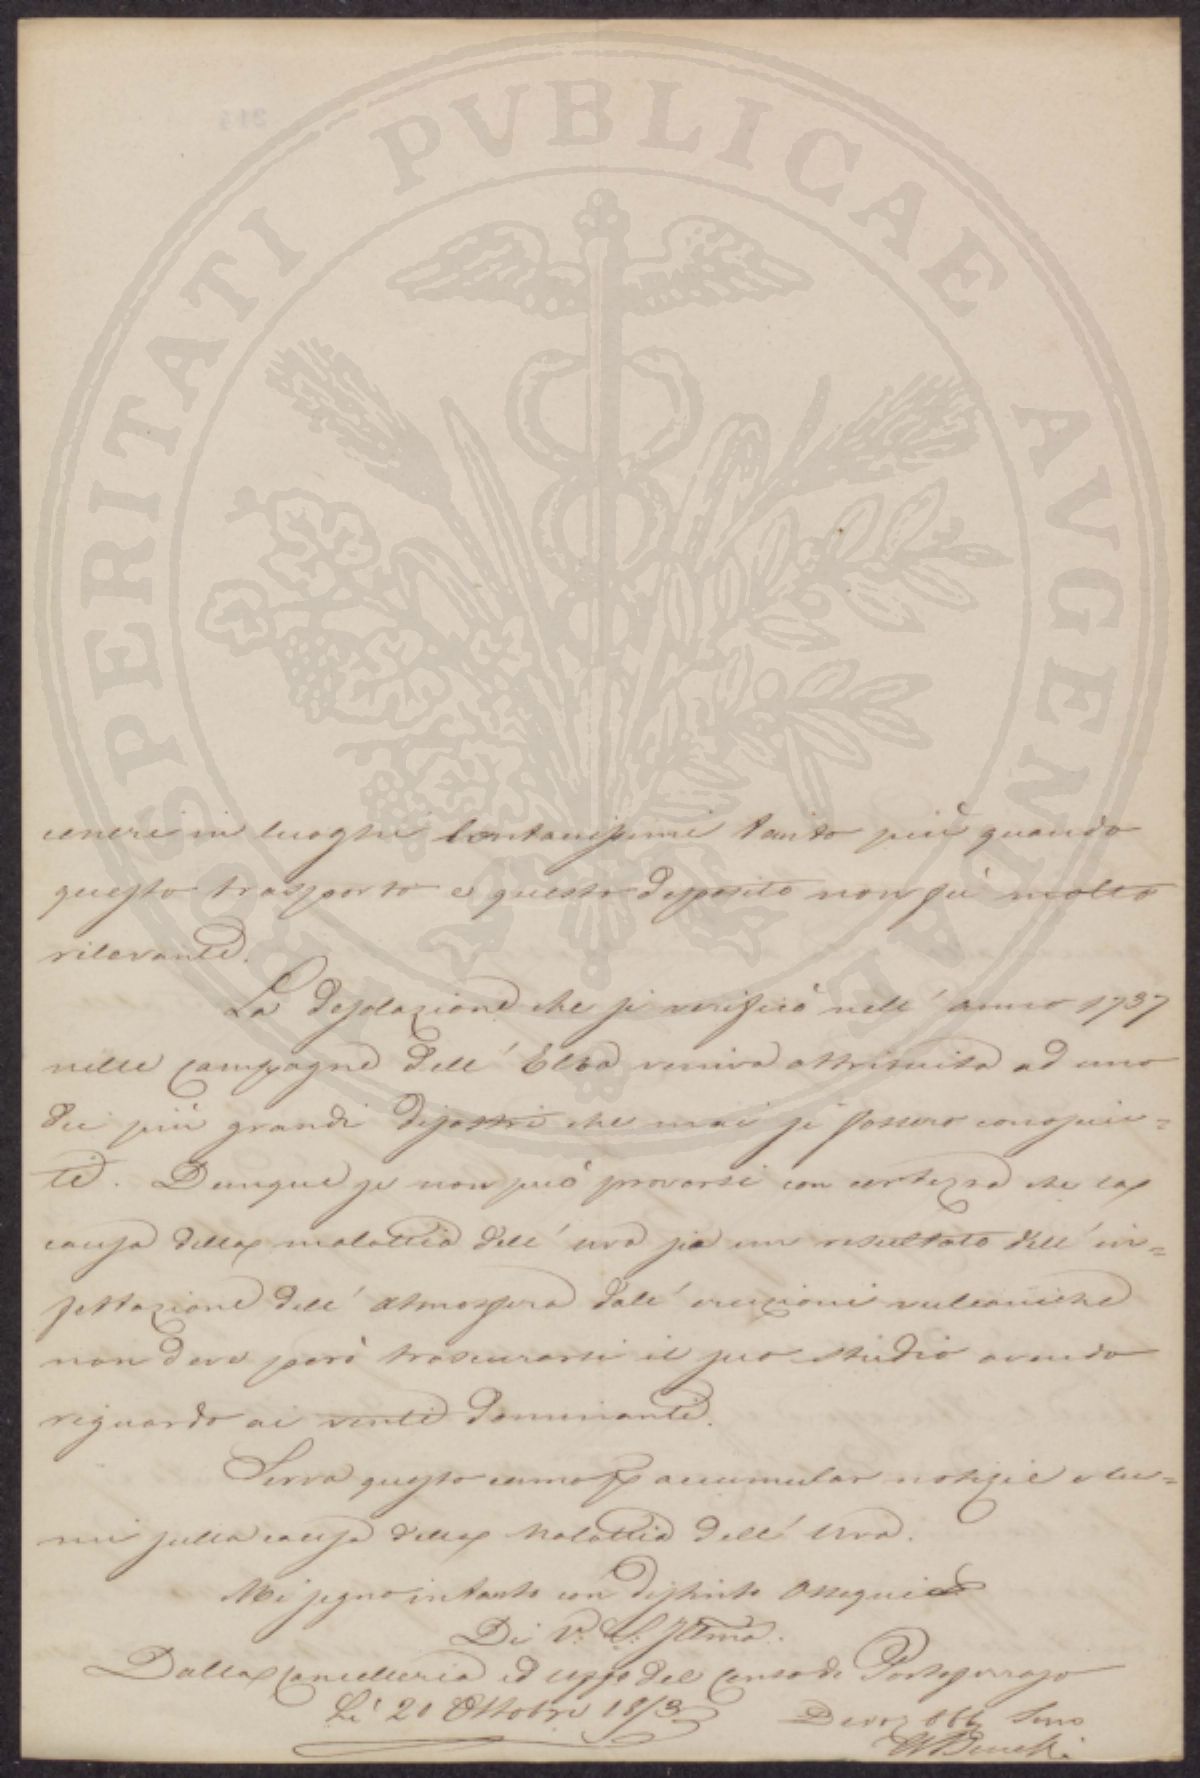 PROSPERITATI PVBLICAE AVGENDAE
ceneri in luoghi lontanissimi tanto più quando
questo trasporto e questo deposito non fù molto
rilevante.
La desolazione che si verificò nell' anno 1737
nelle campagne dell' Elba veniva attribuita ad uno
dei più grandi disastri che mai si fossero conosciu=
ti. Dunque se non può provarsi con certezza che la
causa della malattia dell' uva sia un resultato dell' in=
fettazione dell' atmosfera dall' eruzioni vulcaniche
non deve però trascurarsi il suo studio avendo
riguardo ai venti dominanti.
Serva questo come accumular notizie e lu=
mi sulla causa della Malattia dell' Uva.
Mi segno intanto con distinto Ossequio
Di V. S. Illma.
Dalla Cancelleria ed Uffo del Censo di Portoferrajo
Li 20 Ottobre 1853
Devoz Obb Servo